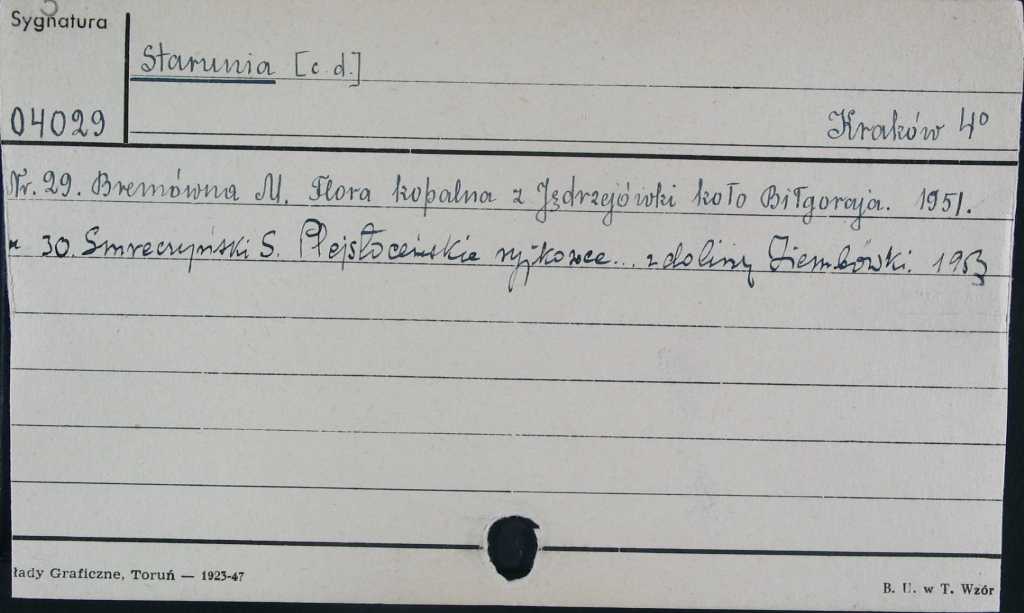 Sygnatura
Starunia [c. d.]
04029
Kraków 4°
Nr. 29. Bremówna M. Flora kopalna z Jędrzejówki koło Biłgoraja. 1951.
" 30. Smreczyński S. Plejstoceńskie ryjkowce... z doliny Ziembówki. 1953
łady Graficzne, Toruń — 1923-47
B. U. w T. Wzór